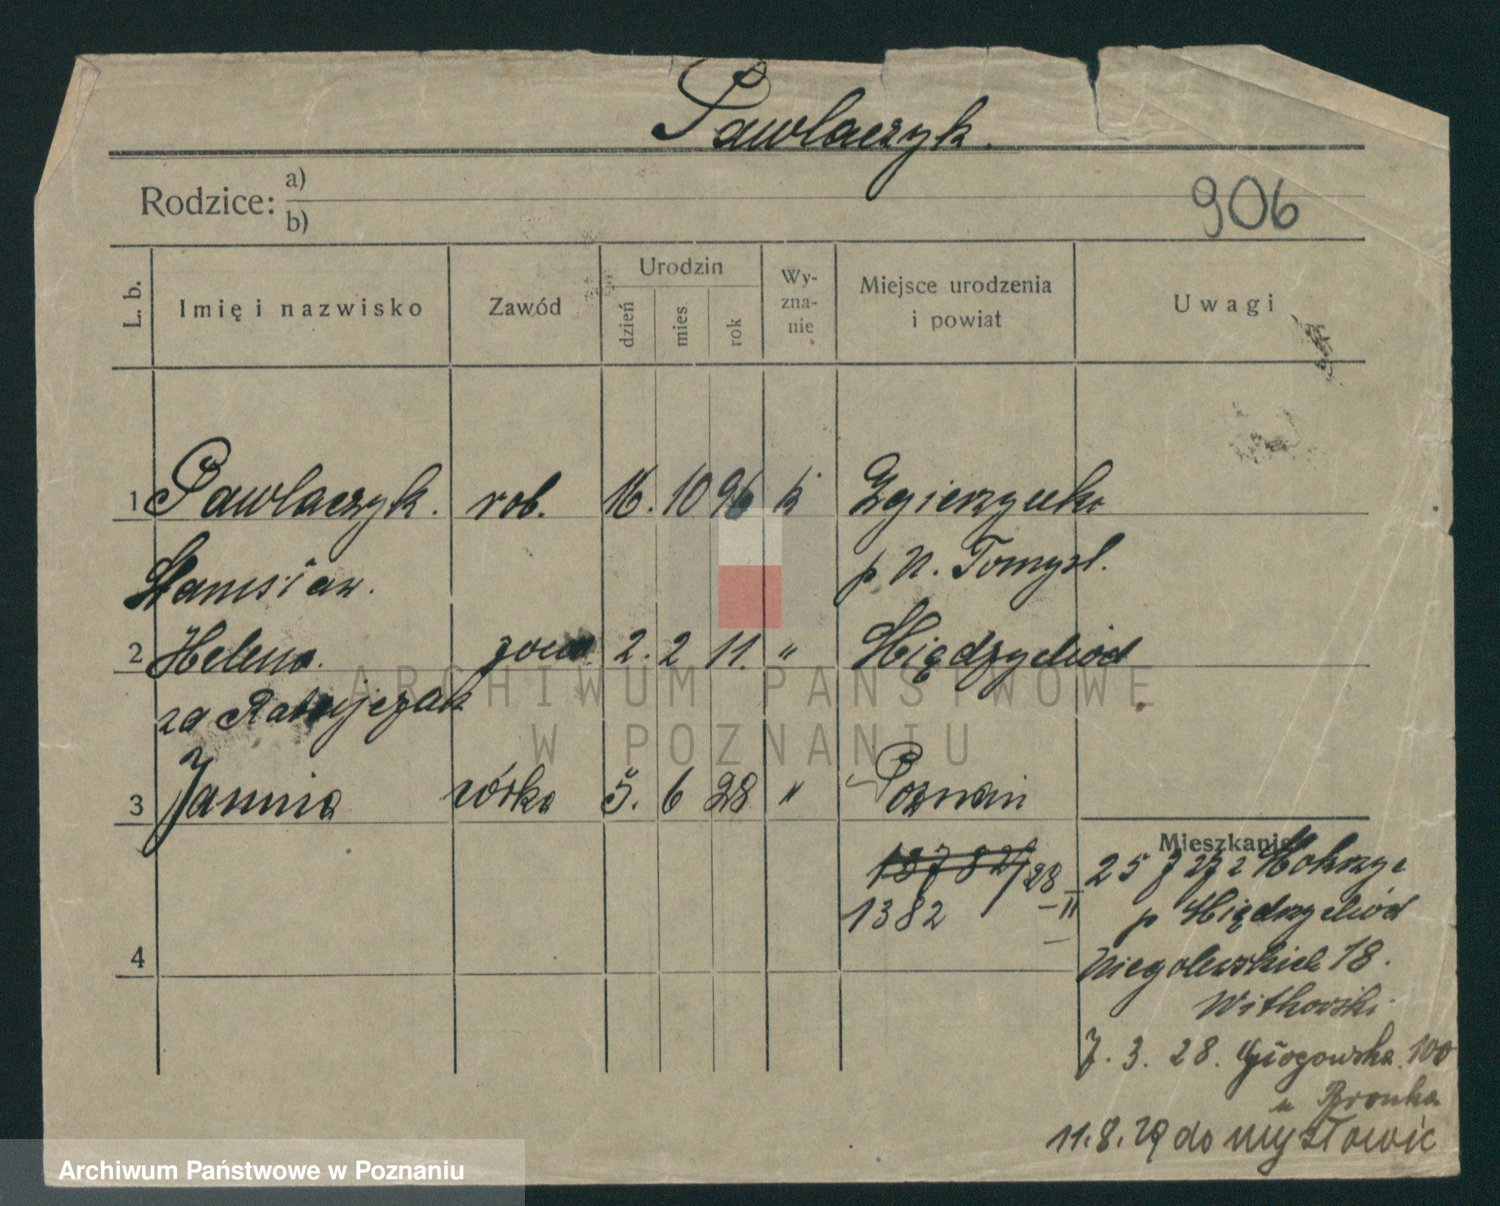 Pawlaczyk.
Rodzice: a)
b)
906
L. b.
Imię i nazwisko
Zawód
Urodzin
dzień
mies
rok
Wy-
zna-
nie
Miejsce urodzenia
i powiat
Uwagi
1 Pawlaczyk. rob. 16. 10 96 k
Stanisław. p. N. Tomysl.
2 Helena. żona 2. 2 11. " Międzychód
za Ratajczak
ARCHIWUM PAŃSTWOWE
W POZNANIU
3 Janina córka 5. 6 28 " Poznań
Mieszkanie
25 7 27 z Mokrzy
/28
1382 II p Międzychód
4
Niegolewskich 18.
Witkowski
7. 3. 28. Głogowska 100
u Bronka
11. 8. 29 do Mysłowic
Archiwum Państwowe w Poznaniu